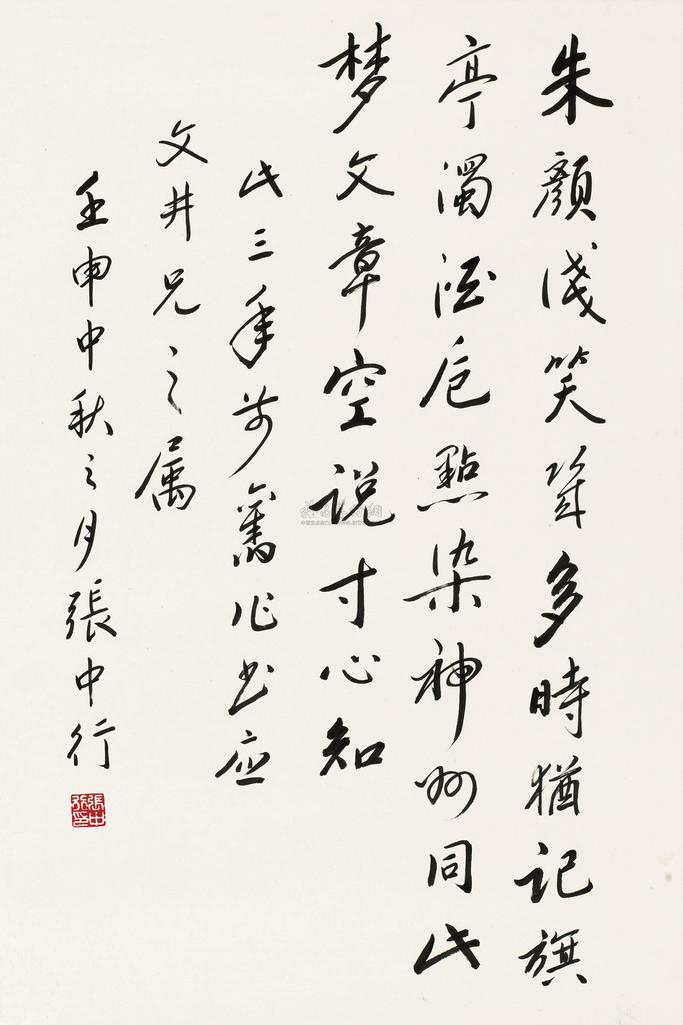 朱顏淺笑幾多時猶记旗
亭濁酒卮點染神州同此
梦文章空说寸心知
此三年前舊作书应
文井兄之属
壬申中秋之月張中行
張中行印